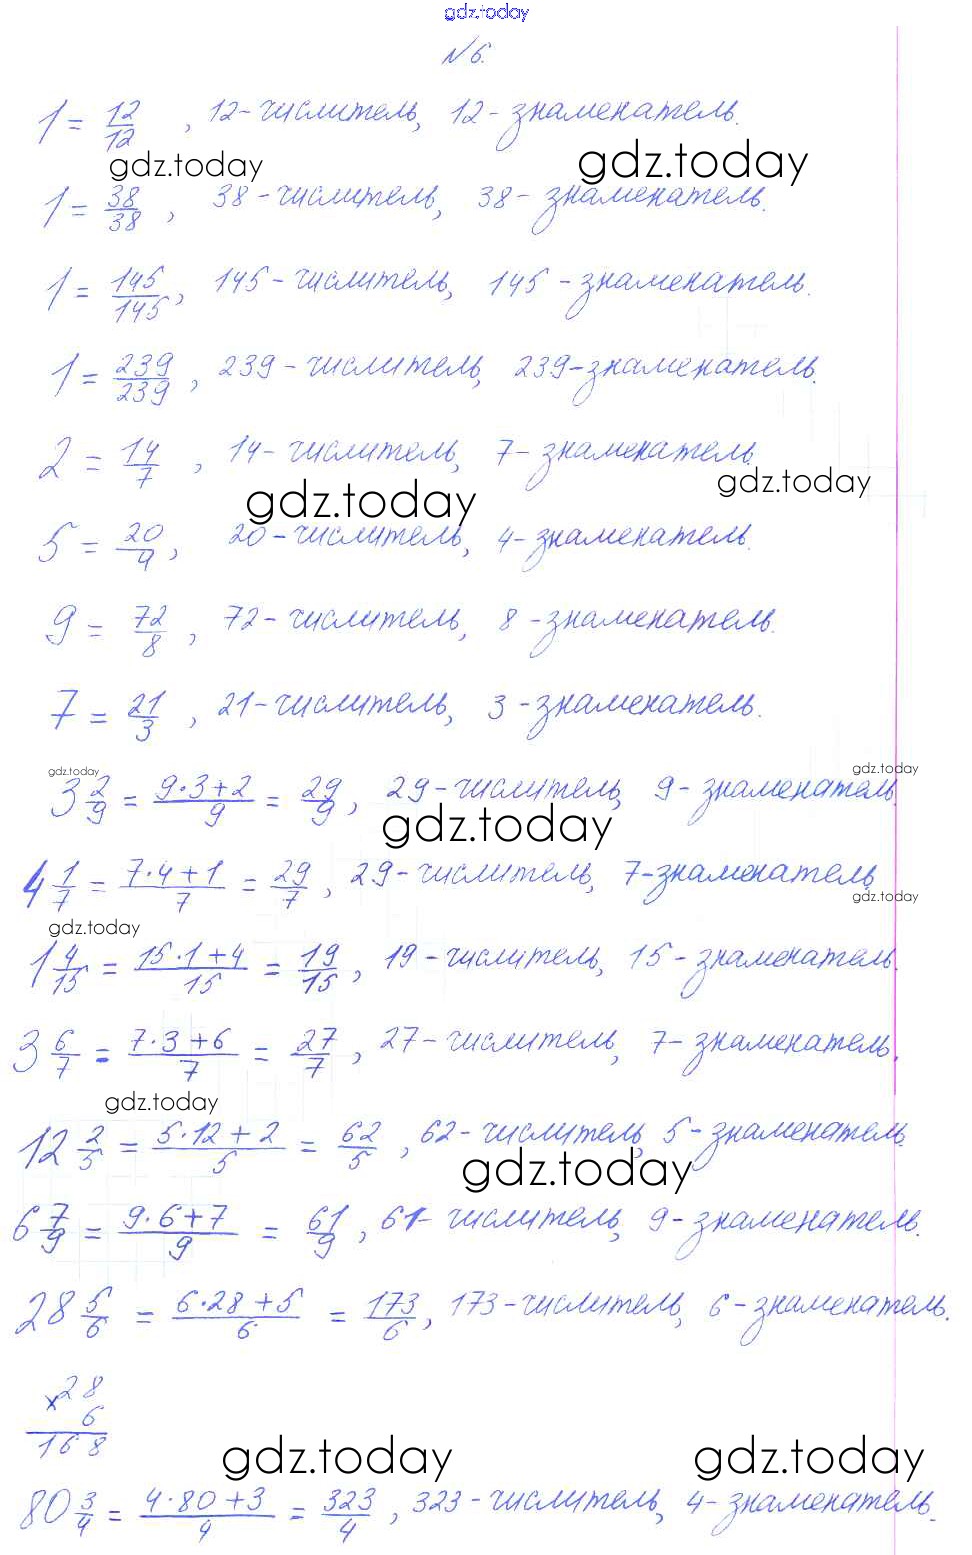 gdz.today
№6.
1 = 12/12, 12 - числитель, 12 - знаменатель.
gdz.today gdz.today
1 = 38/38, 38 - числитель, 38 - знаменатель.
1 = 145/145, 145 - числитель, 145 - знаменатель.
1 = 239/239, 239 - числитель, 239 - знаменатель.
2 = 14/7, 14 - числитель, 7 - знаменатель.
gdz.today gdz.today
5 = 20/4, 20 - числитель, 4 - знаменатель.
9 = 72/8, 72 - числитель, 8 - знаменатель.
7 = 21/3, 21 - числитель, 3 - знаменатель.
gdz.today gdz.today
3 2/9 = 9·3+2/9 = 29/9, 29 - числитель, 9 - знаменатель.
gdz.today
4 1/7 = 7·4+1/7 = 29/7, 29 - числитель, 7 - знаменатель
gdz.today gdz.today
1 4/15 = 15·1+4/15 = 19/15, 19 - числитель, 15 - знаменатель.
3 6/7 = 7·3+6/7 = 27/7, 27 - числитель, 7 - знаменатель.
gdz.today
12 2/5 = 5·12+2/5 = 62/5, 62 - числитель, 5 - знаменатель.
gdz.today
6 7/9 = 9·6+7/9 = 61/9, 61 - числитель, 9 - знаменатель.
28 5/6 = 6·28+5/6 = 173/6, 173 - числитель, 6 - знаменатель.
×28
6
168
gdz.today gdz.today
80 3/4 = 4·80+3/4 = 323/4, 323 - числитель, 4 - знаменатель.